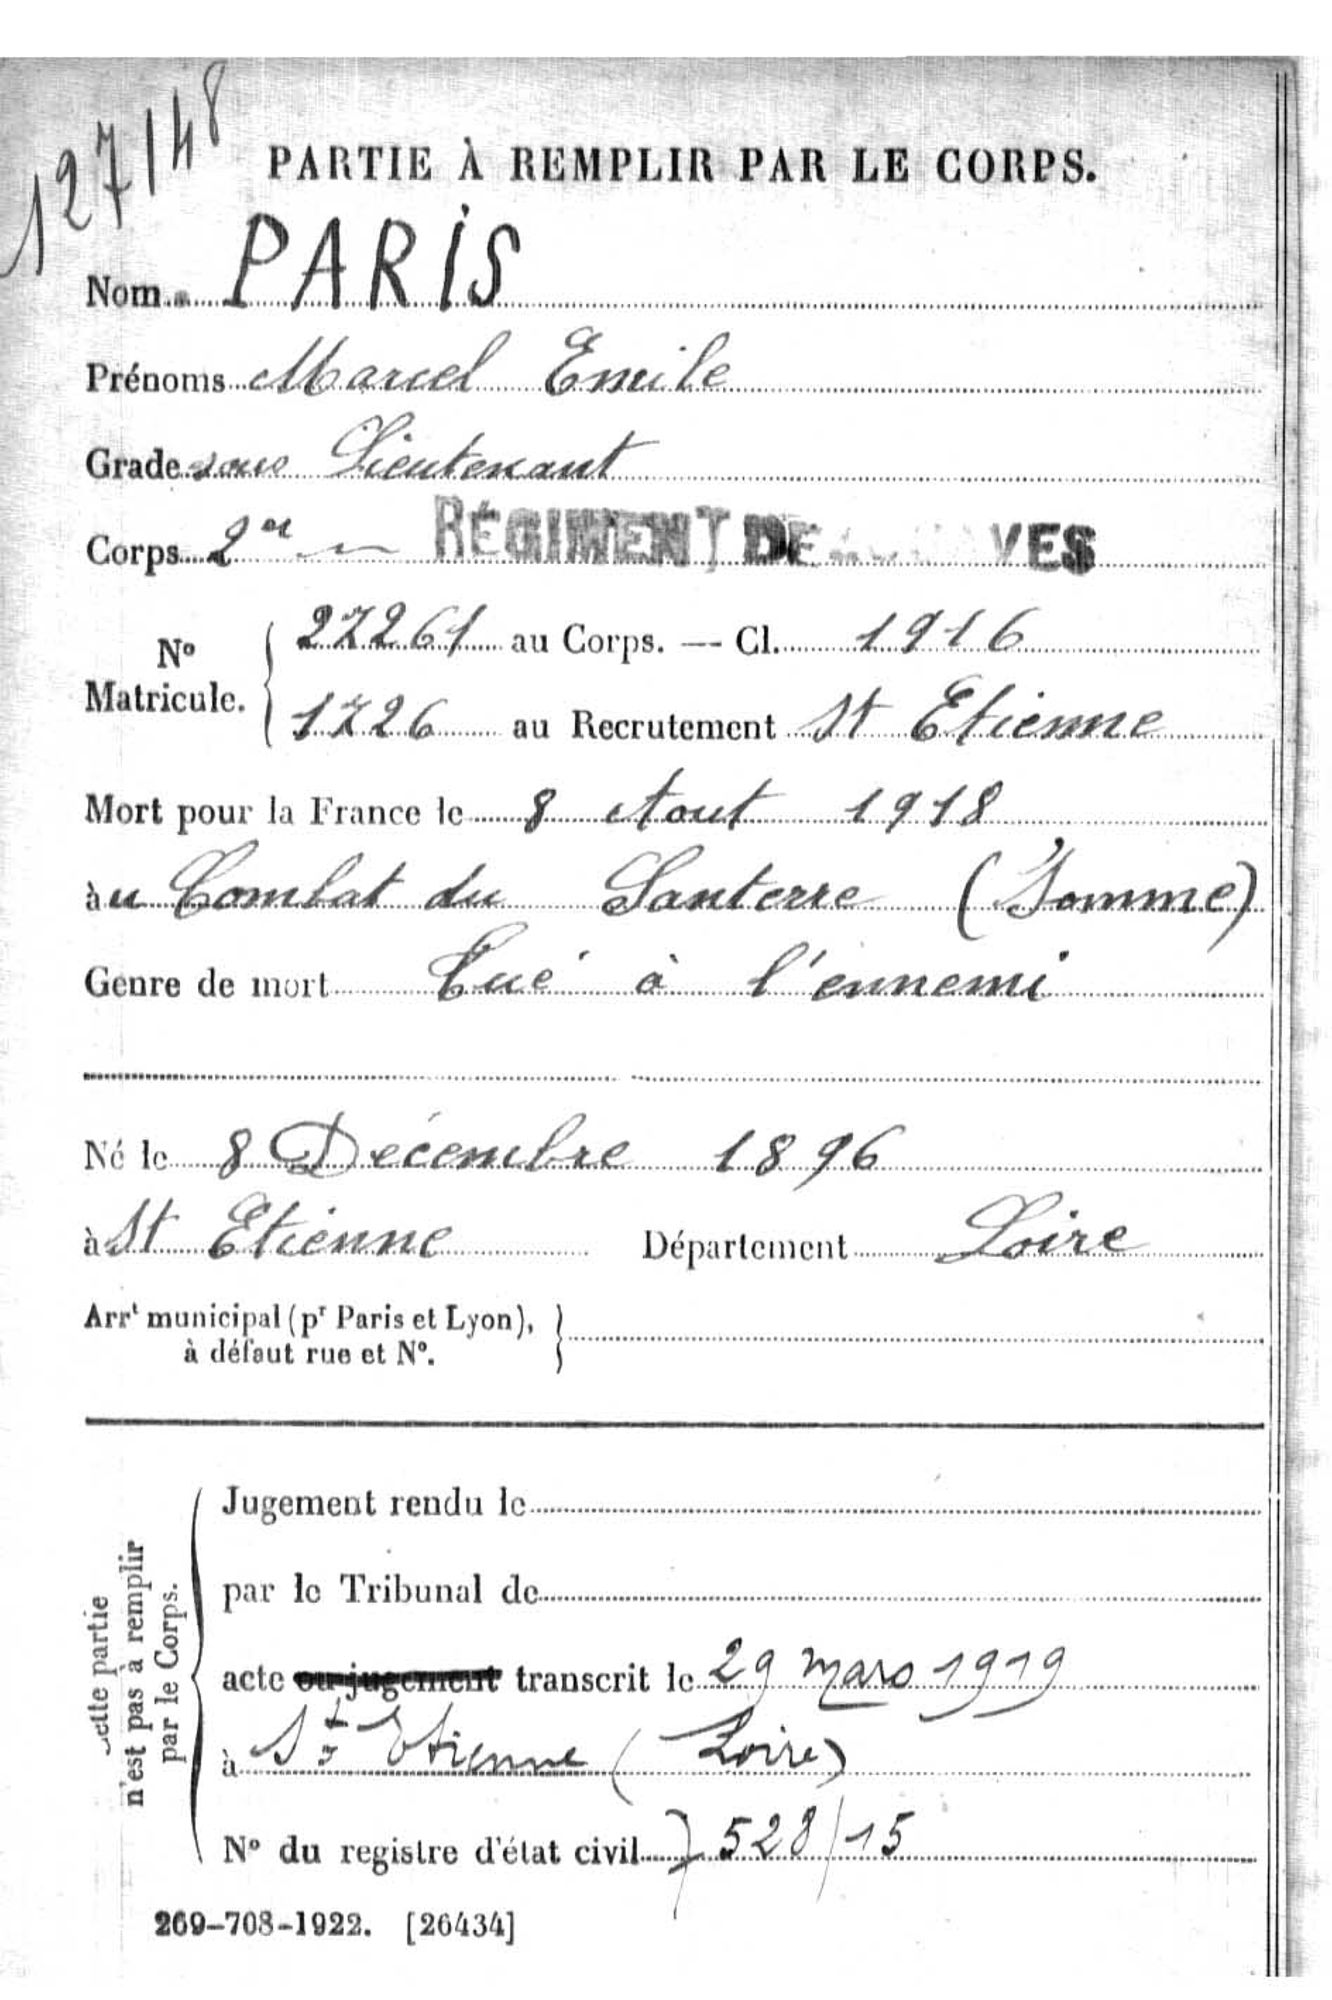 127148
PARTIE À REMPLIR PAR LE CORPS.
Nom PARIS
Prénoms Marcel Emile
Grade sous Lieutenant
Corps 2e RÉGIMENT DE ZOUAVES
N° Matricule.
27261 au Corps. — Cl. 1916
1726 au Recrutement St Etienne
Mort pour la France le 8 Aout 1918
à u Combat du Santerre (Somme)
Genre de mort Tué à l'ennemi
Né le 8 Décembre 1896
à St Etienne Département Loire
Arrt municipal (pr Paris et Lyon),
à défaut rue et N°.
Cette partie
n'est pas à remplir
par le Corps.
Jugement rendu le
par le Tribunal de
acte ou jugement transcrit le 29 mars 1919
à St Etienne (Loire)
N° du registre d'état civil 528/15
269-708-1922. [26434]